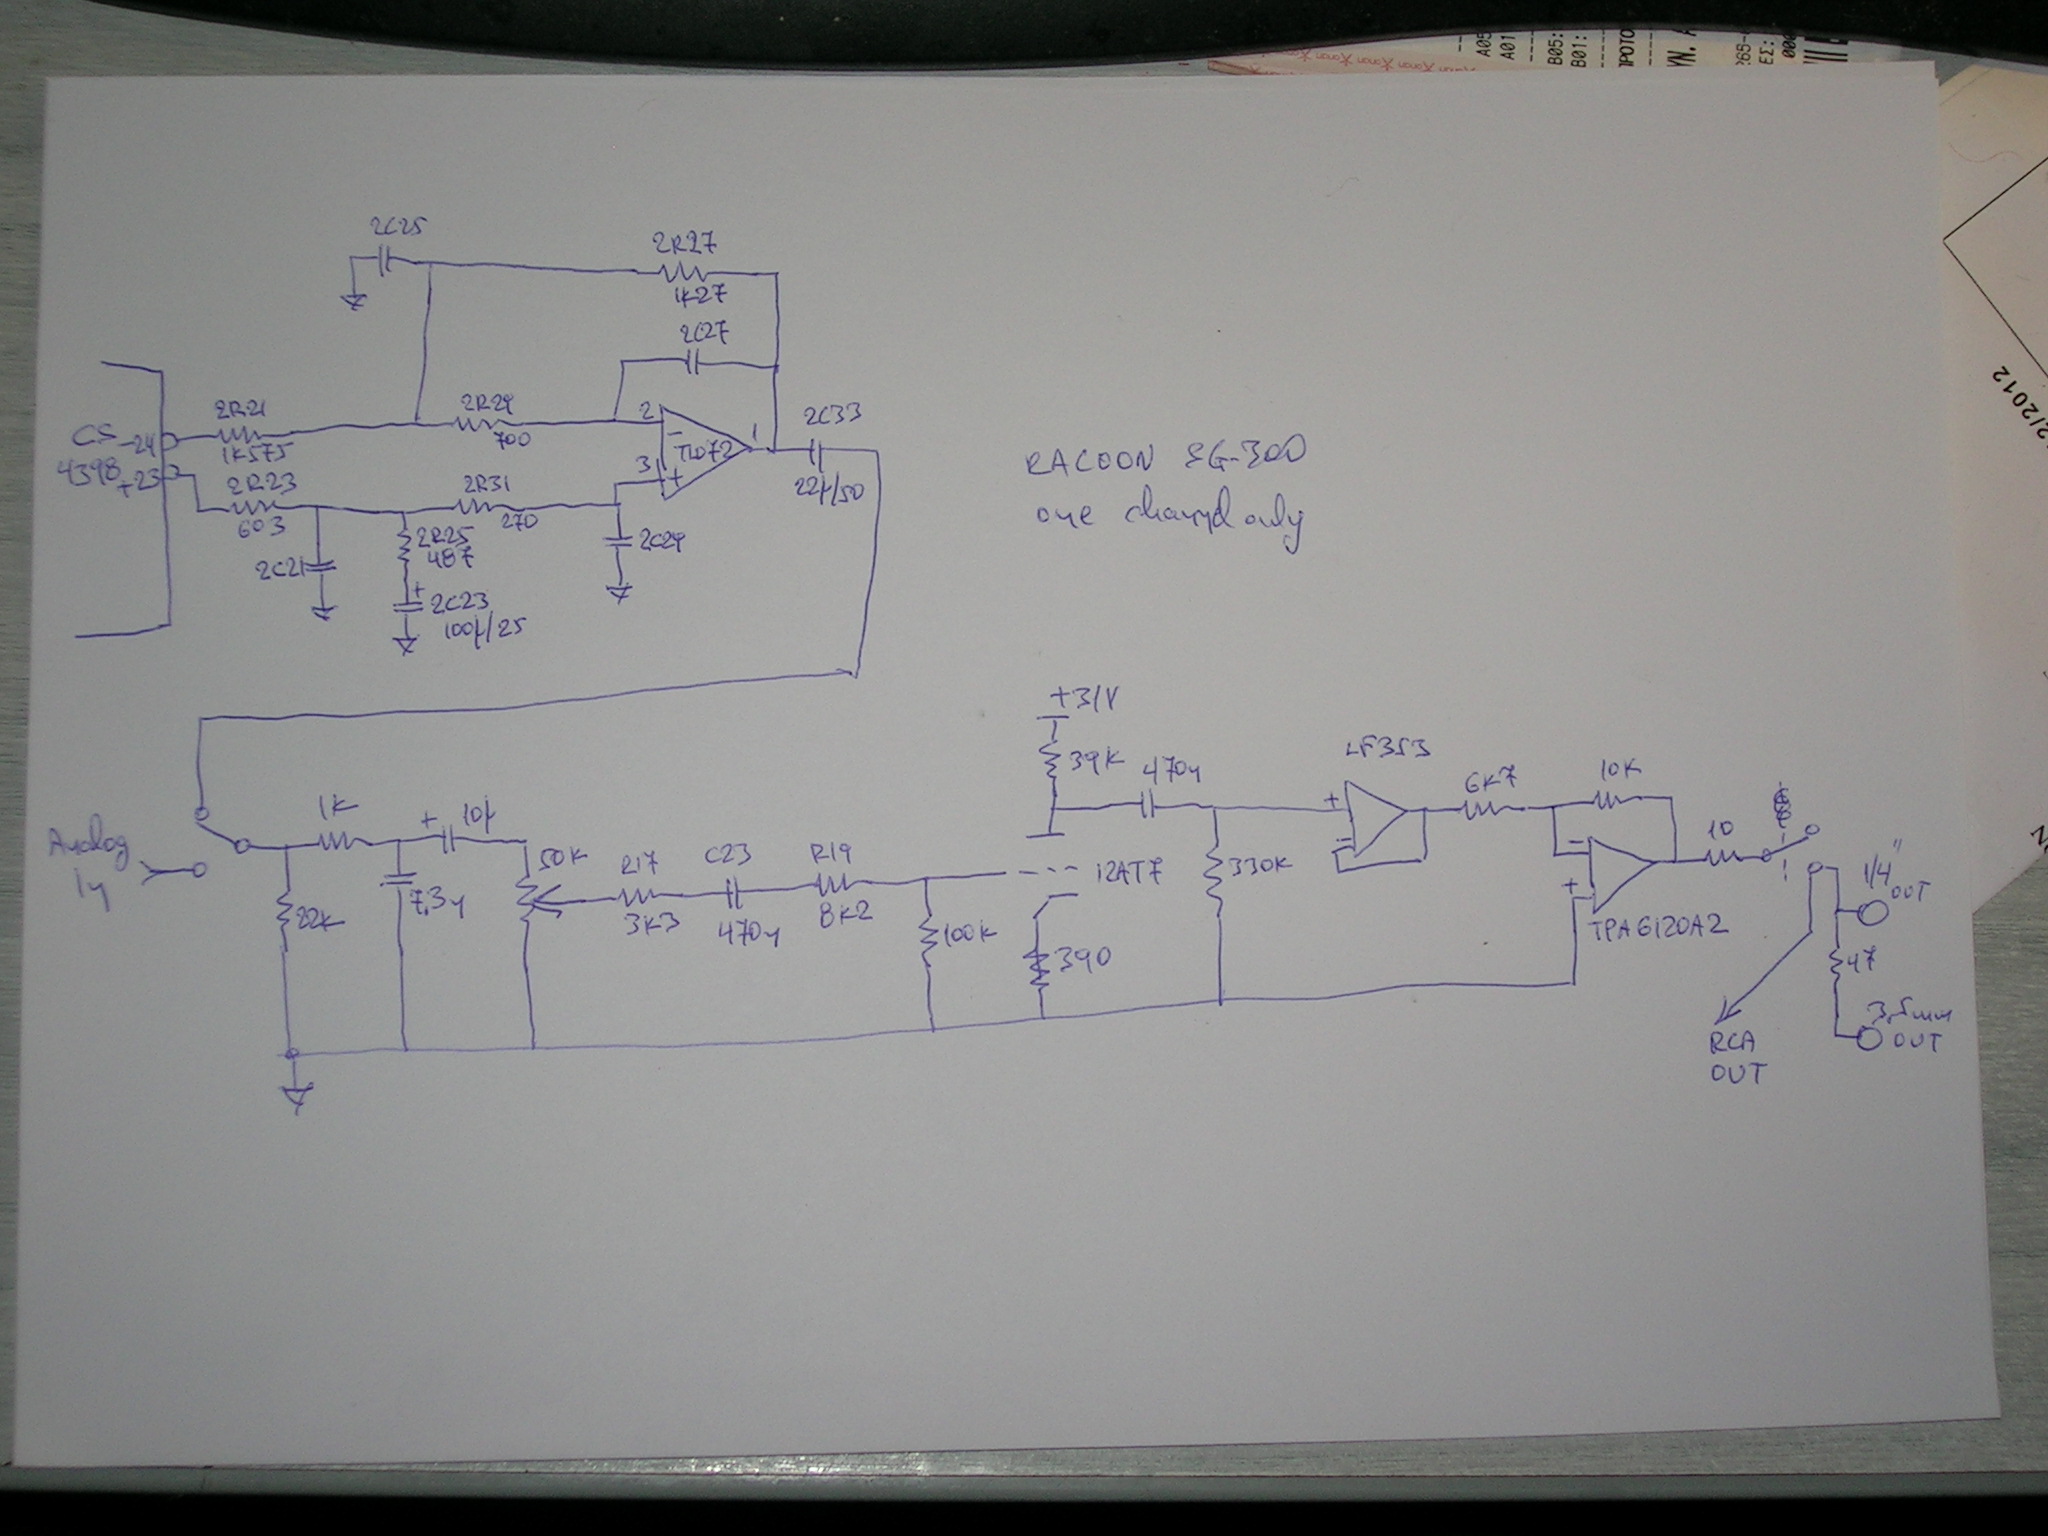 2C25
2R27
1K27
2C27
2R21
1K575
2R29
700
CS
4398
-24
+23
2
3
1
-
+
TL072
2C33
22µ/50
2R23
603
2R31
270
2R25
487
2C21
2C29
+
2C23
100µ/25
RACOON SG-300
one channel only
Analog
In
1K
+
10µ
22K
7,3n
50K
R17
3K3
C23
470n
R19
8K2
100K
+31V
39K
470n
12AT7
390
330K
LF353
+
-
6K7
10K
-
+
TPA6120A2
10
1/4" OUT
47
3,5mm
OUT
RCA
OUT
2/2012
B05:
B01:
A05
A01